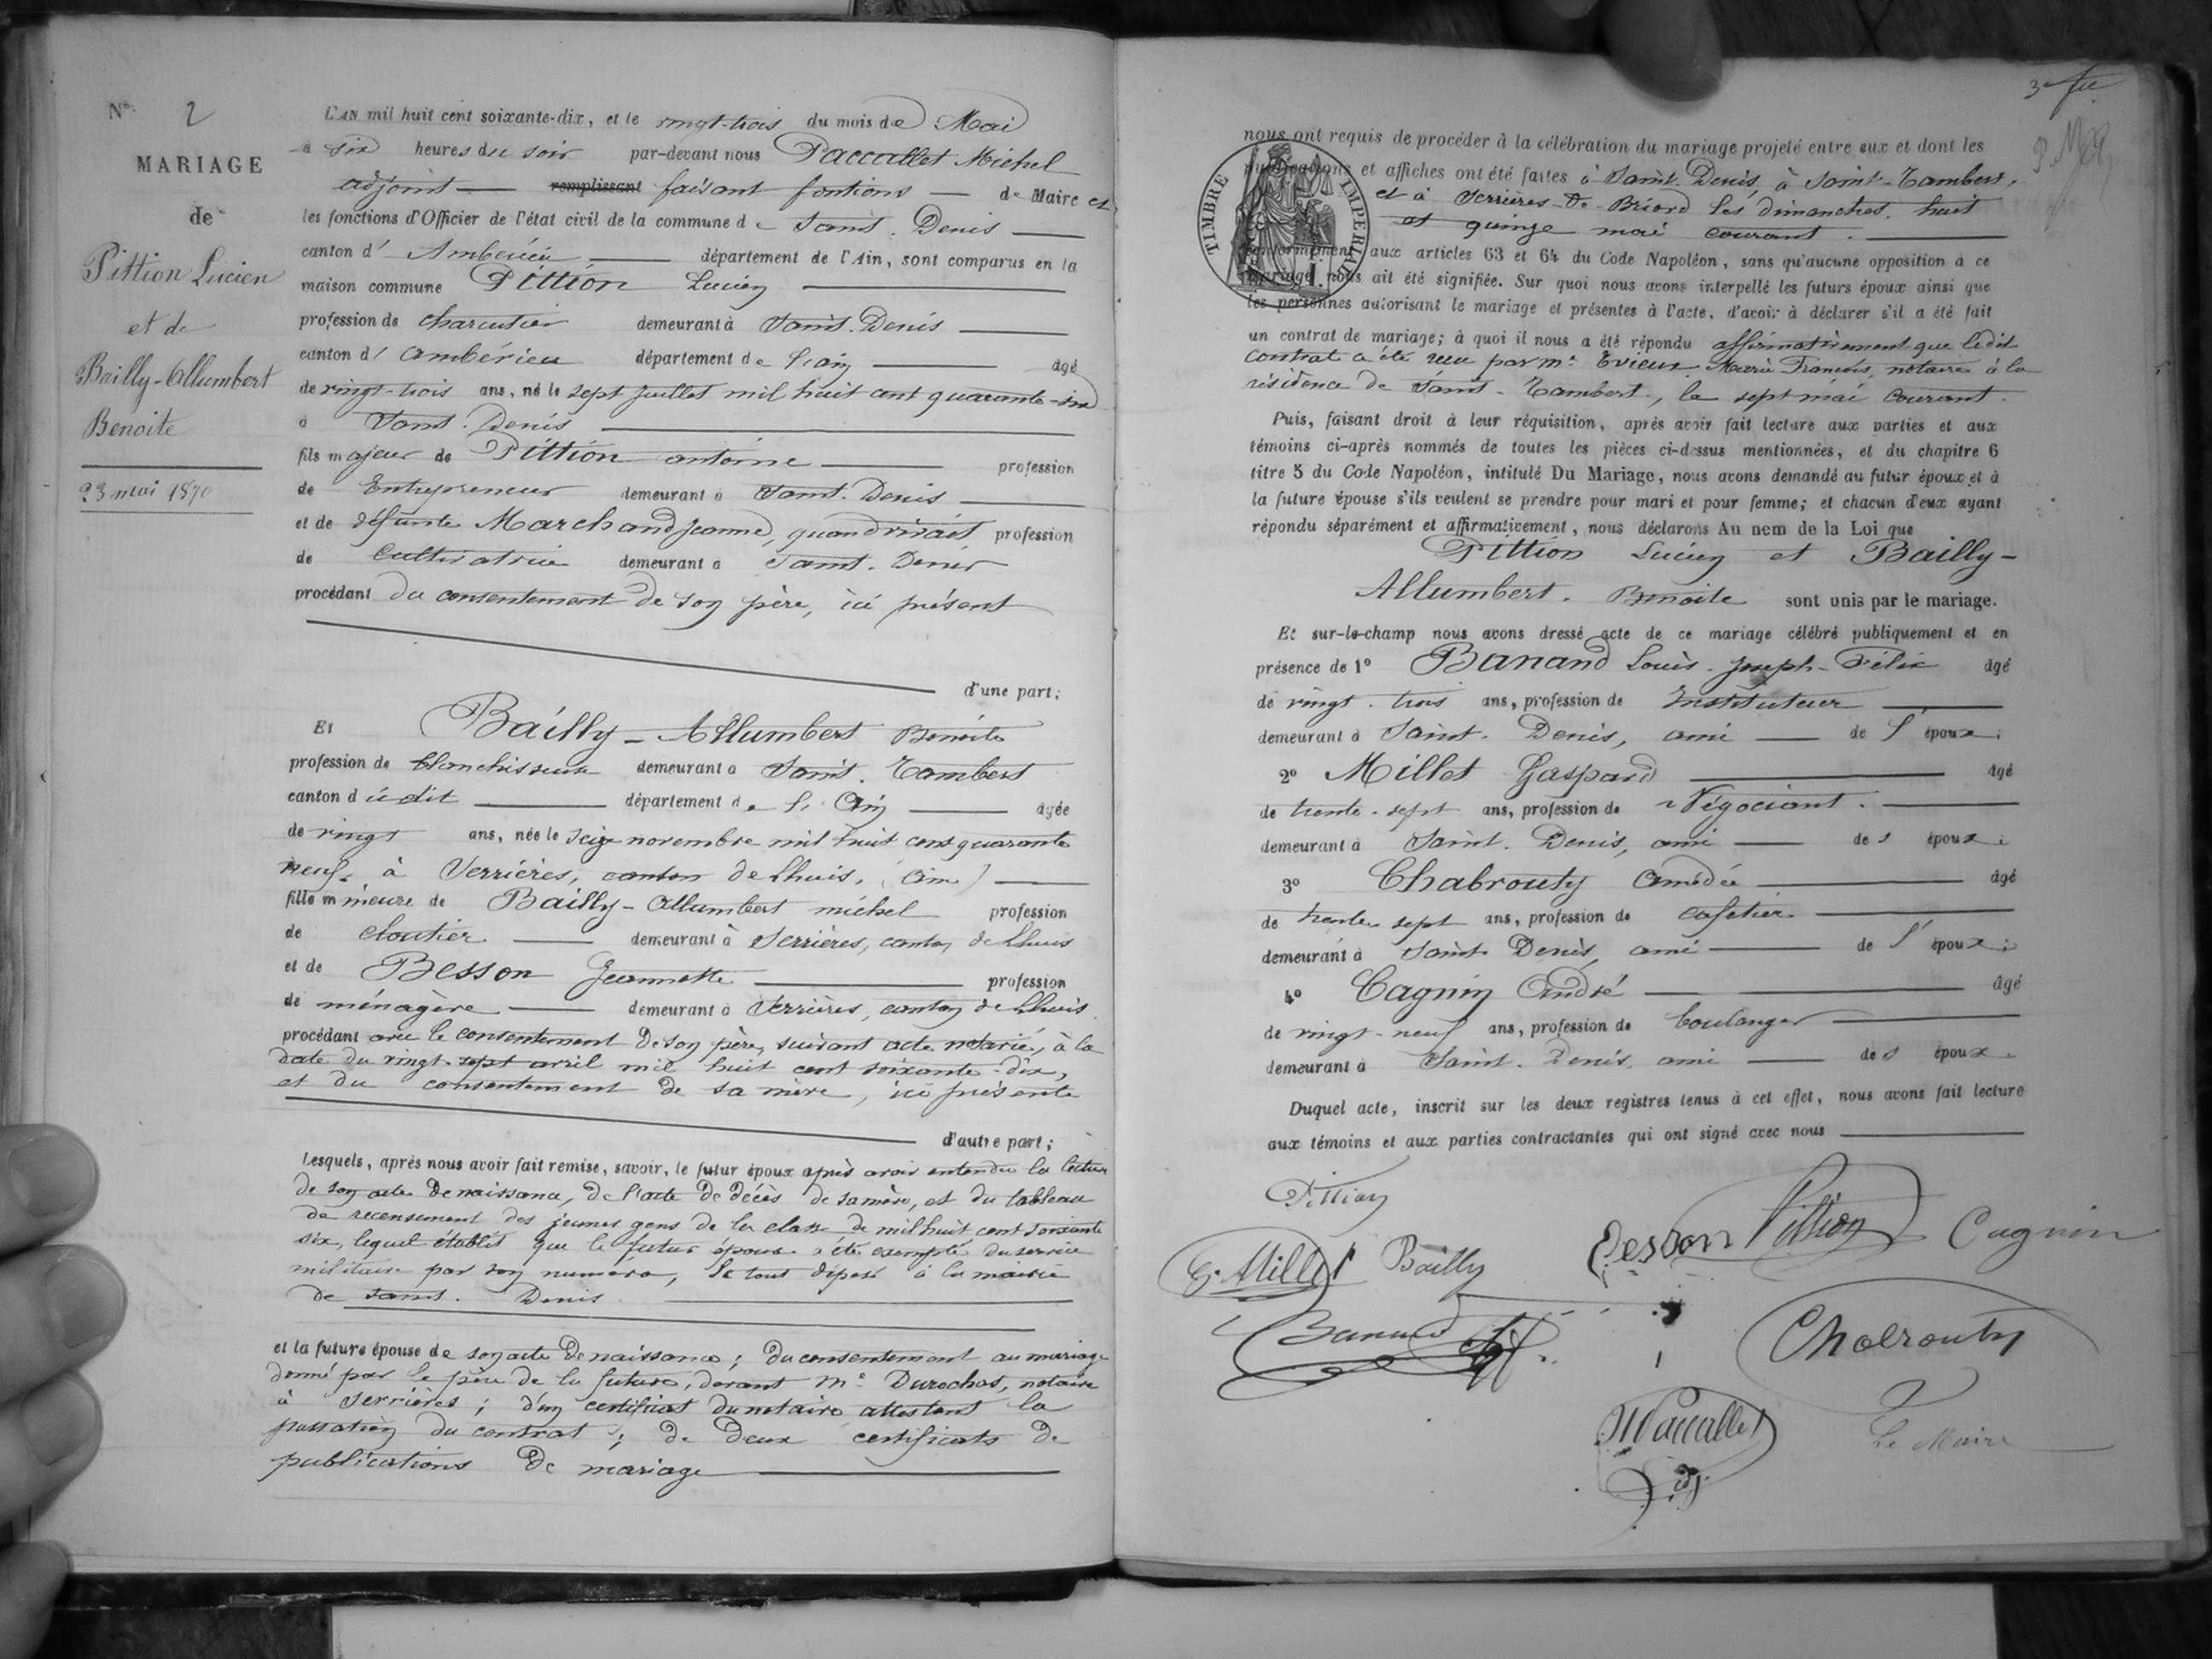 N° 2
MARIAGE
de
Pittion Lucien
et de
Bailly-Allumbert
Benoite
23 mai 1870
L'AN mil huit cent soixante-dix, et le vingt-trois du mois de Mai
à six heures du soir par-devant nous Paccallet Michel
adjoint remplissant faisant fontions de Maire et
les fonctions d'Officier de l'état civil de la commune de Saint-Denis
canton d'Ambérieu département de l'Ain, sont comparus en la
maison commune Pittion Lucien
profession de charcutier demeurant à Saint-Denis
canton d'Ambérieu département de l'ain agé
de vingt-trois ans, né le sept juillet mil huit cent quarante-six
à Saint-Denis
fils majeur de Pittion antoine profession
de Entrepreneur demeurant à Saint-Denis
et de défunte Marchand Jeanne, quand vivait profession
de Cultivatrice demeurant à Saint-Denis
procédant du consentement de son père, ici présent
d'une part;
Et Bailly-Allumbert Benoite
profession de blanchisseuse demeurant à Saint-Rambert
canton dudit département de l'Ain agée
de vingt ans, née le seize novembre mil huit cent quarante
neuf, à Serrières, canton de Lhuis, (Ain)
fille mineure de Bailly-Allumbert michel profession
de cloutier demeurant à Serrières, canton de Lhuis
et de Besson Jeannette profession
de ménagère demeurant à Serrières, canton de Lhuis
procédant avec le consentement de son père, suivant acte notarié, à la
date du vingt-sept avril mil huit cent soixante-dix,
et du consentement de sa mère, ici présente
d'autre part;
Lesquels, après nous avoir fait remise, savoir, le futur époux après avoir entendu la lecture
de son acte de naissance, de l'acte de décès de sa mère, et du tableau
de recensement des jeunes gens de la classe de mil huit cent soixante
six, lequel établit que le futur époux a été exempté du service
militaire par son numéro, le tout déposé à la mairie
de Saint-Denis
et la future épouse de son acte de naissance; du consentement au mariage
donné par le père de la future, devant Me Durochat, notaire
à Serrières; d'un certificat du notaire attestant la
passation du contrat; de deux certificats de
publications de mariage
nous ont requis de procéder à la célébration du mariage projeté entre eux et dont les
publications et affiches ont été faites à Saint-Denis, à Saint-Rambert,
et à Serrières-de-Briord les dimanches huit
et quinze mai courant.
TIMBRE IMPERIAL
conformément aux articles 63 et 64 du Code Napoléon, sans qu'aucune opposition à ce
mariage nous ait été signifiée. Sur quoi nous avons interpellé les futurs époux ainsi que
les personnes autorisant le mariage et présentes à l'acte, d'avoir à déclarer s'il a été fait
un contrat de mariage; à quoi il nous a été répondu affirmativement que ledit
contrat a été reçu par Me Evieux Marie François, notaire à la
résidence de Saint-Rambert, le sept mai courant.
Puis, faisant droit à leur réquisition, après avoir fait lecture aux parties et aux
témoins ci-après nommés de toutes les pièces ci-dessus mentionnées, et du chapitre 6
titre 5 du Code Napoléon, intitulé Du Mariage, nous avons demandé au futur époux et à
la future épouse s'ils veulent se prendre pour mari et pour femme; et chacun d'eux ayant
répondu séparément et affirmativement, nous déclarons Au nom de la Loi que
Pittion Lucien et Bailly-
Allumbert. Benoite sont unis par le mariage.
Et sur-le-champ nous avons dressé acte de ce mariage célébré publiquement et en
présence de 1° Banand Louis-Joseph-Félix âgé
de vingt-trois ans, profession de Instituteur
demeurant à Saint-Denis, ami de l'époux;
2° Millet Gaspard âgé
de trente-sept ans, profession de Négociant
demeurant à Saint-Denis, ami des époux;
3° Chabrouty Amédée âgé
de trente sept ans, profession de cafetier
demeurant à Saint-Denis, ami de l'époux;
4° Cagnin André âgé
de vingt-neuf ans, profession de boulanger
demeurant à Saint-Denis, ami des époux.
Duquel acte, inscrit sur les deux registres tenus à cet effet, nous avons fait lecture
aux témoins et aux parties contractantes qui ont signé avec nous
Pittion
Besson Pittion Cagnin
G. Millet Bailly
Banand
Chabrouty
MPaccallet
Le Maire
adj.